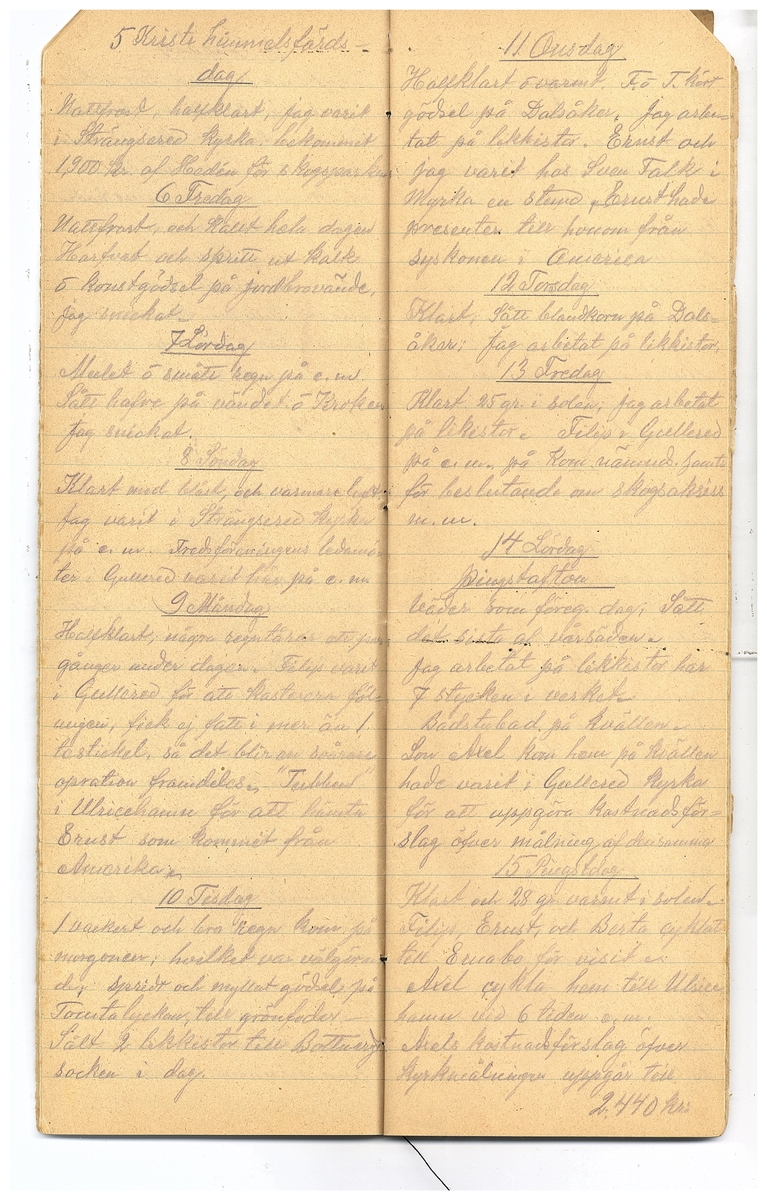 5 Kristi himmelsfärds-
dag
Nattfrost, halfklart, jag varit
i Strängsered Kyrka. bekommit
1,900 kr. af Hedén för skogsparken
6 Fredag
Nattfrost, och kallt hela dagen
Harfvat och spritt ut kalk
ö konstgödsel på jordbrovände,
jag snickat.
7 Lördag
Mulet ö småte regn på e.m.
Sått hafre på vändet ö Kroken
jag snickat.
8 Söndag
Klart med blåst, och varmare luft.
Jag varit i Strängsered Kyrka
på e.m. Fredsföreningens ledamö-
ter i Gullered varit här på e.m
9 Måndag
Halfklart, några regntårar ett par
gånger under dagen. Filip varit
i Gullered för att kastrera föl-
ungen, fick ej fatt i mer än 1.
testickel, så det blir en svårare
opration framdeles. "Tubben"
i Ulricehamn för att hämta
Ernst som kommit från
Amerika.
10 Tisdag
1 vackert och bra regn kom på
morgonen; hvilket var välgöran
de; spridt och myllat gödsel på
Tomtalyckan, till grönfoder -
Sålt 2 likkistor till Bottnaryd
socken i dag.
11 Onsdag
Halfklart ö varmt. F. ö T. kört
gödsel på Dalsåker. Jag arbe-
tat på likkistor. Ernst och
jag varit hos Sven Falk i
Myrka en stund, Ernst hade
presenter till honom från
syskonen i America
12 Torsdag
Klart, Sått blandkorn på Dals-
åker; Jag arbetat på likkistor,
13 Fredag
Klart 25 gr. i solen; jag arbetat
på likistor. Filip i Gullered
på e.m. på Kom. nämnd. samt
för beslutande om skogsaksiss
m.m.
14 Lördag
pingstafton
väder som föreg. dag; Sått
det sista af vårsäden.
Jag arbetat på likkistor har
7 stycken i verket.
Badstubad på kvällen.
Son Axel kom hem på kvällen
hade varit i Gullered Kyrka
för att uppgöra kostnadsför-
slag öfver målning af densamma
15 Pingstdag
Klart och 28 gr. varmt i solen.
Filip, Ernst, och Berta cyklat
till Ernabo för visit.
Axel cykla hem till Ulrice
hamn vid 6 tiden e.m.
Axels kostnadsförslag öfver
kyrkmålningen uppgår till
2.440 kr: